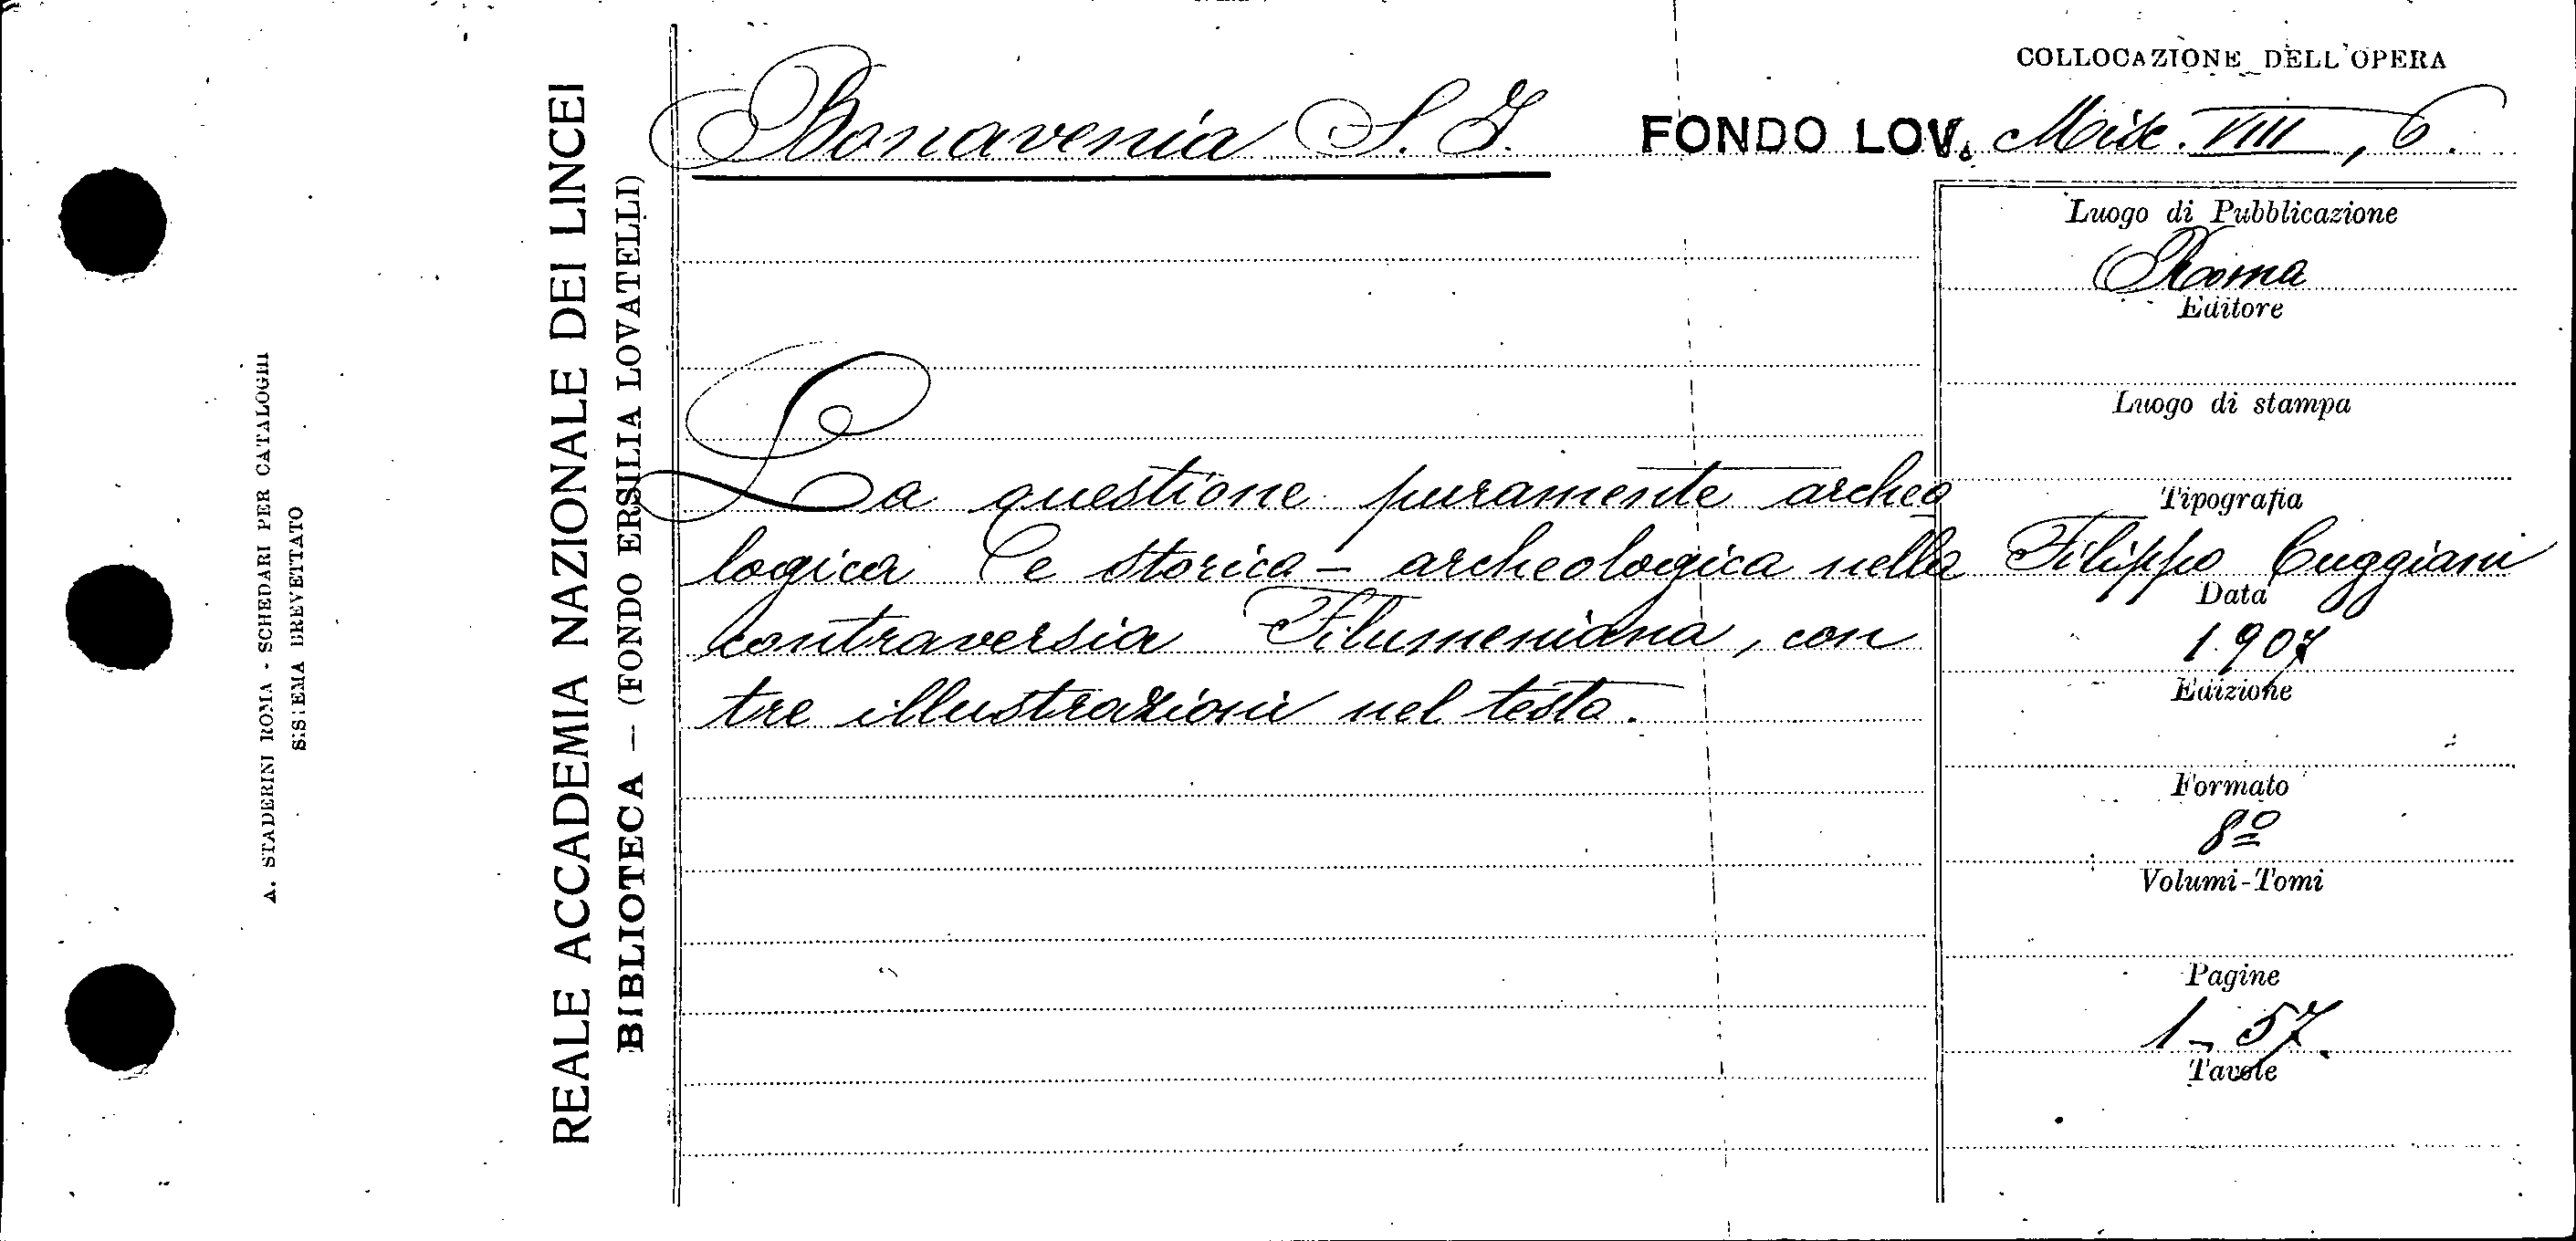 COLLOCAZIONE DELL'OPERA
Bonavenia S. J. FONDO LOV. Misc. VIII, 6.
REALE ACCADEMIA NAZIONALE DEI LINCEI
BIBLIOTECA — (FONDO ERSILIA LOVATELLI)
A. STADERINI ROMA - SCHEDARI PER CATALOGHI
SISTEMA BREVETTATO
La questione puramente archeo
logica e storica - archeologica nella
contraversia Filumeniana, con
tre illustrazioni nel testo.
Luogo di Pubblicazione
Roma
Editore
Luogo di stampa
Tipografia
Filippo Cuggiani
Data
1907
Edizione
Formato
8º
Volumi-Tomi
Pagine
1-57.
Tavole